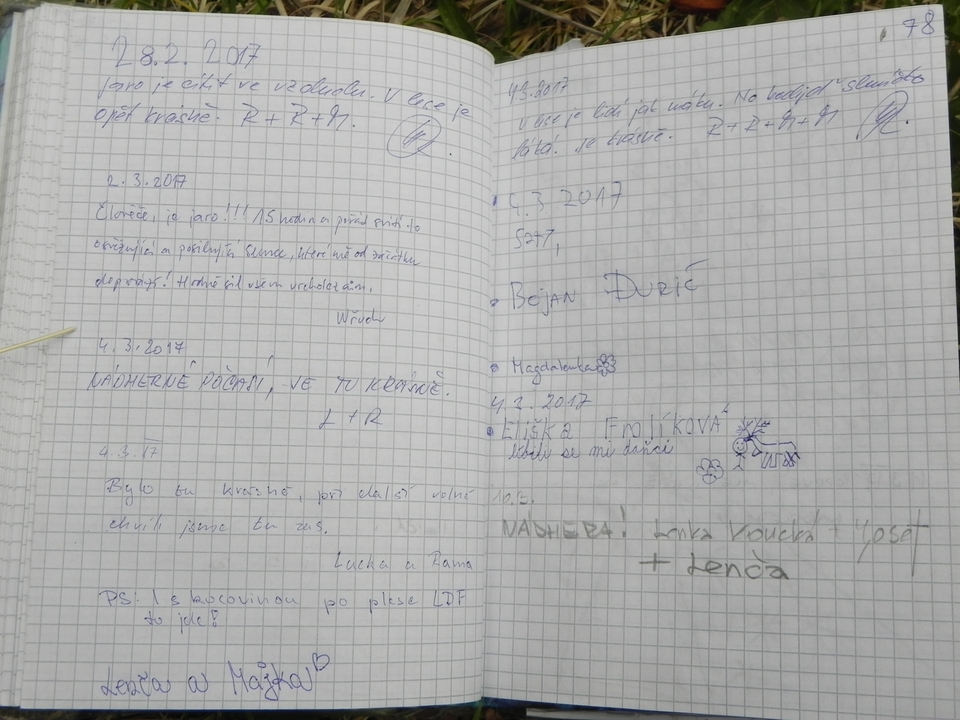 28.2. 2017
jaro je cítit ve vzduchu. V lese je
opět krásně. R+R+M.
2.3.2017
Člověče, je jaro!!! 15 hodin a pořád svítí to
a posilující slunce, které mě od začátku
Hodně sil všem
4.3.2017
NÁDHERNÉ POČASÍ, JE TU KRÁSNĚ.
L+R
4.3.17
Bylo tu krásně, při další volné
chvíli jsme tu zas.
Lucka a Rama
PS: I s kocovinou po plese LDF
to jde!
Lenča a Májka
78
4.3.2017
V lese je lidí jak
je krásně. R+R+M+M
4.3 2017
• BOJAN ĐURIĆ
• Magdalenka
4.3. 2017
• Eliška FROLÍKOVÁ
se mi
10.3.
NÁDHERA! Lenka + Josef
+ Lenča